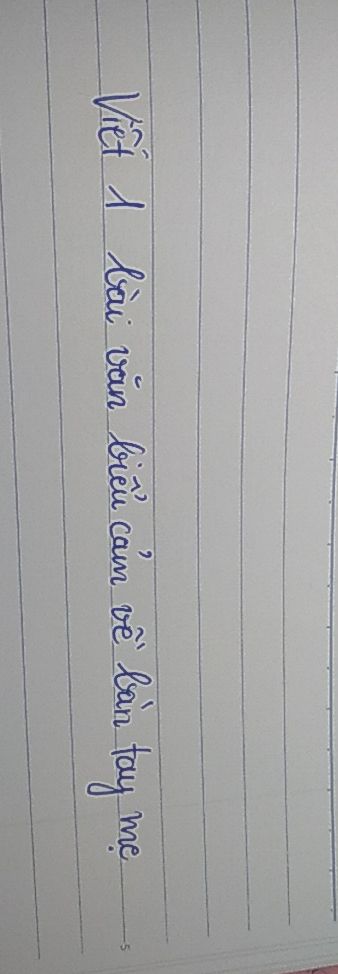 Viết 1 bài văn biểu cảm về bàn tay mẹ